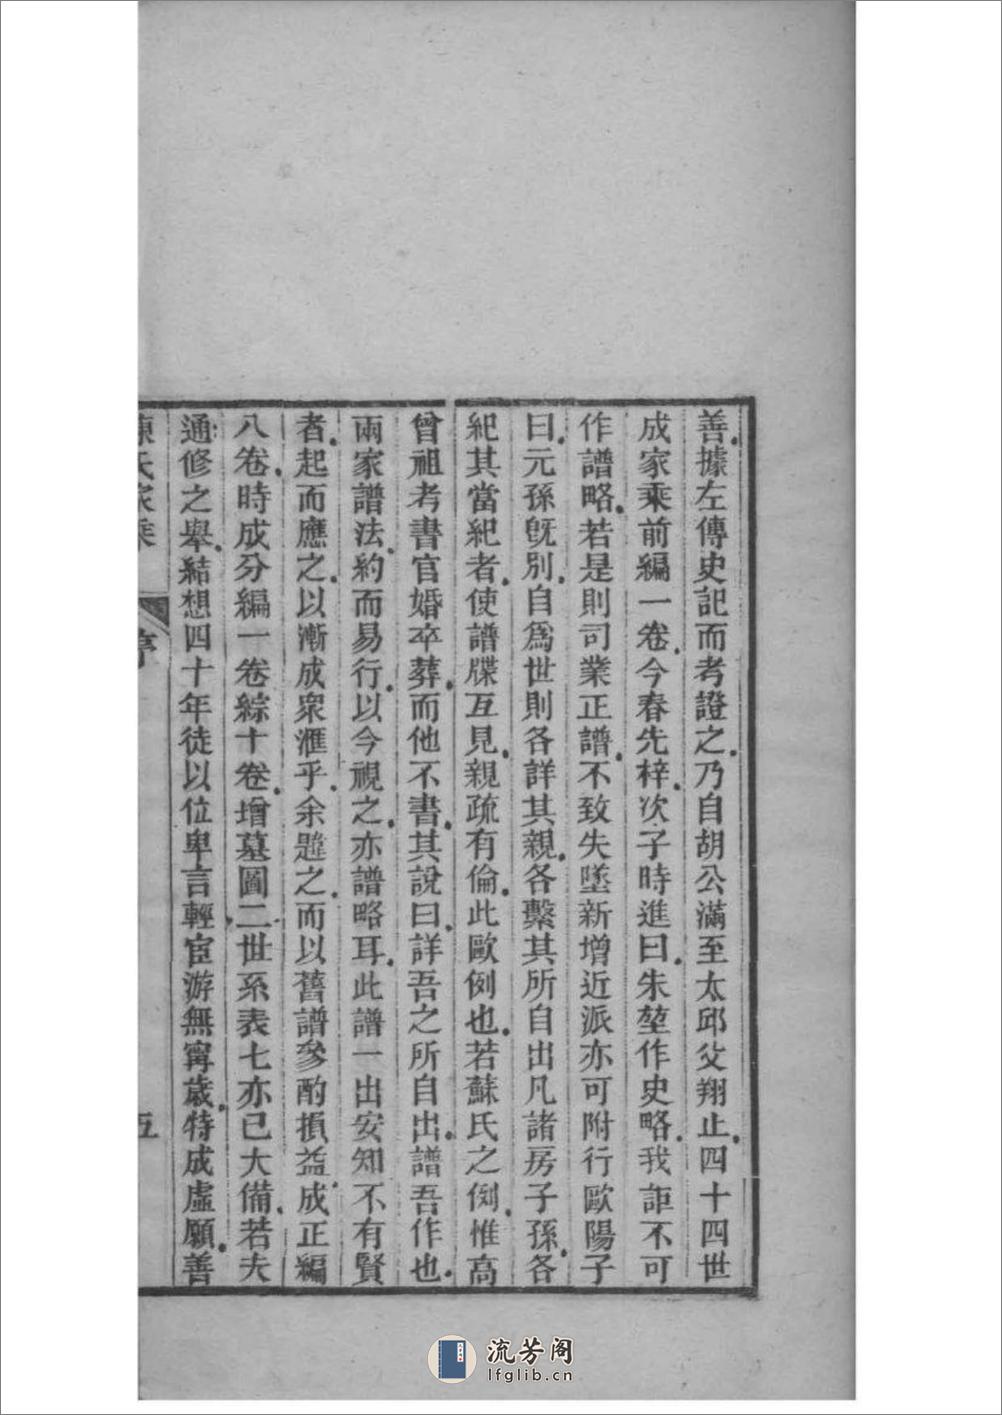 善據左傳史記而考證之乃自胡公滿至太邱父翔止四十四世
成家乘前編一卷今春先梓次子時進曰朱堃作史略我詎不可
作譜略若是則司業正譜不致失墜新增近派亦可附行歐陽子
曰元孫旣別自爲世則各詳其親各繫其所自出凡諸房子孫各
紀其當紀者使譜牒互見親疏有倫此歐例也若蘇氏之例惟高
曾祖考書官婚卒葬而他不書其說曰詳吾之所自出譜吾作也
兩家譜法約而易行以今視之亦譜略耳此譜一出安知不有賢
者起而應之以漸成眾滙乎余韙之而以舊譜參酌損益成正編
八卷時成分編一卷綜十卷增墓圖二世系表七亦已大備若夫
通修之舉結想四十年徒以位卑言輕宦游無寗歲特成虛願善
陳氏家乘 序 五
流芳阁
lfglib.cn